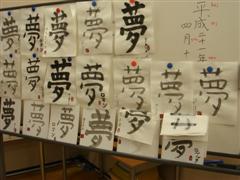 平成二十一年
四月十
夢 夢 夢 夢 夢
夢 夢 夢 夢 夢 夢 夢
夢 夢 夢 夢 夢 夢